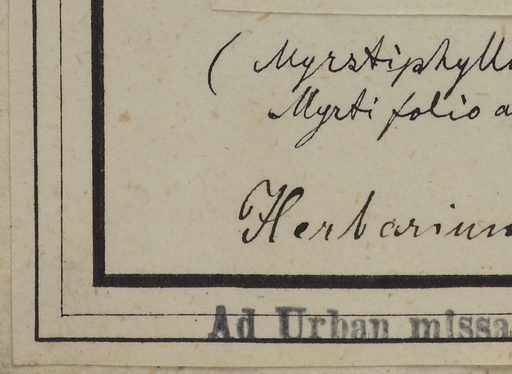 ( Myrstiphyll
Myrti folio a
Herbarium
Ad Urban missa